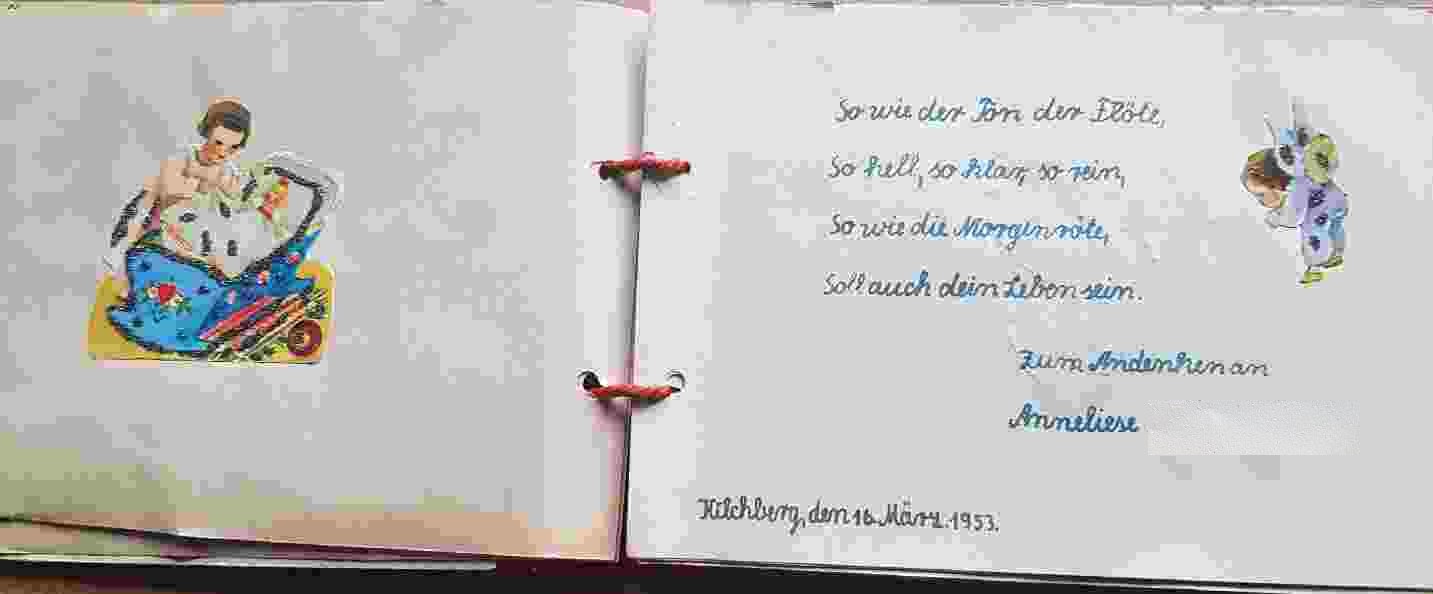 So wie der Ton der Flöte,
So hell, so klar, so rein,
So wie die Morgenröte,
Soll auch dein Leben sein.
Zum Andenken an
Anneliese
Kilchberg, den 16. März. 1953.